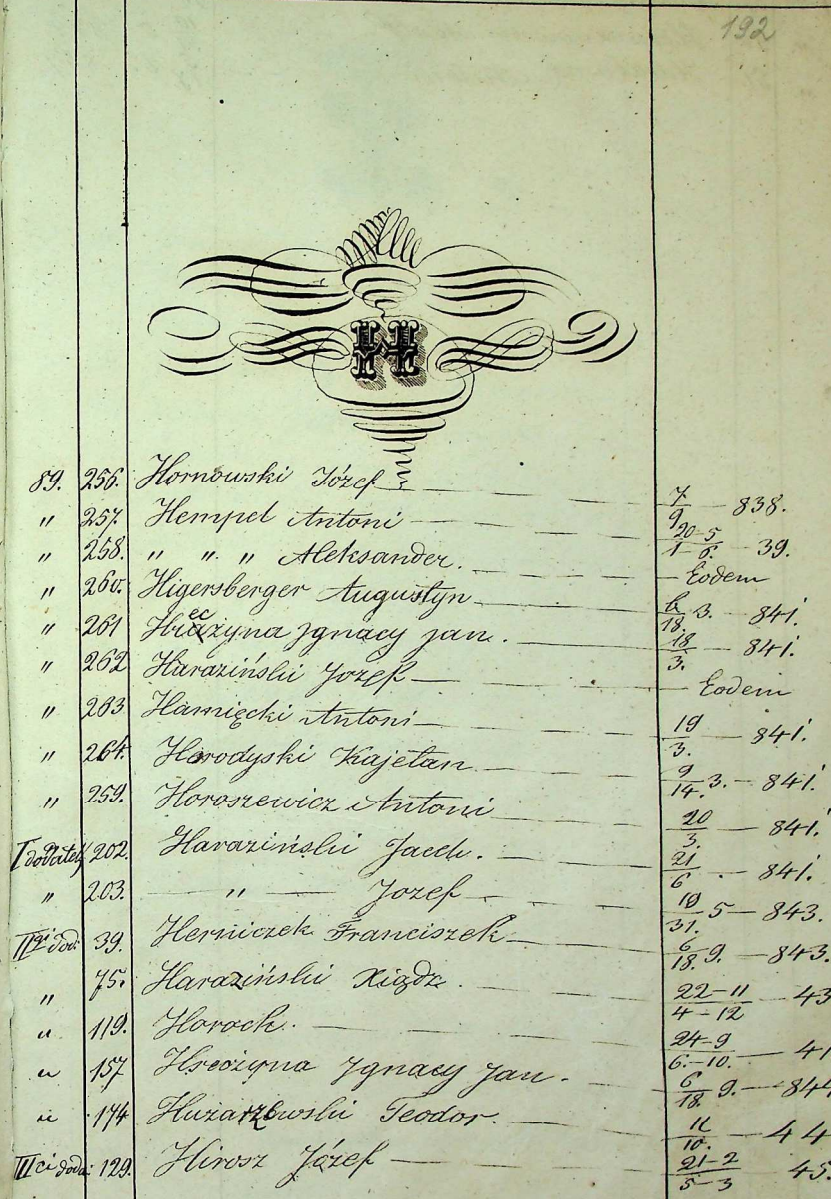 192
H
89. 256. Hornowski Józef 7/9 — 838.
" 257. Hempel Antoni 20-5/1-6. — 39.
" 258. " " " Aleksander. — Eodem
" 260. Higersberger Augustyn 6/18. 3. — 841.
" 261 Ignacy Jan. 18/3. — 841.
" 262 Haraziński Jozef — Eodem
" 263 Harnięcki Antoni 19/3. — 841.
" 264. Horodyski Kajetan 9/14. 3. — 841.
" 259. Horoszewicz Antoni 20/3. — 841.
I dodatek 202. Haraziński Jacek. 21/6 — 841.
" 203. — " — Jozef 19/31. 5 — 843.
II gi dod: 39. Herniczek Franciszek 6/18. 9. — 843.
" 75. Haraziński Xiądz. 22-11/4-12 — 43
" 119. Horoch. 24-9/6.-10. — 41
" 157 Ignacy Jan. 6/18. 9. — 844
" 174 Teodor. 11/10. — 44
III ci doda: 129. Hirosz Józef 21-2/5-3 45.